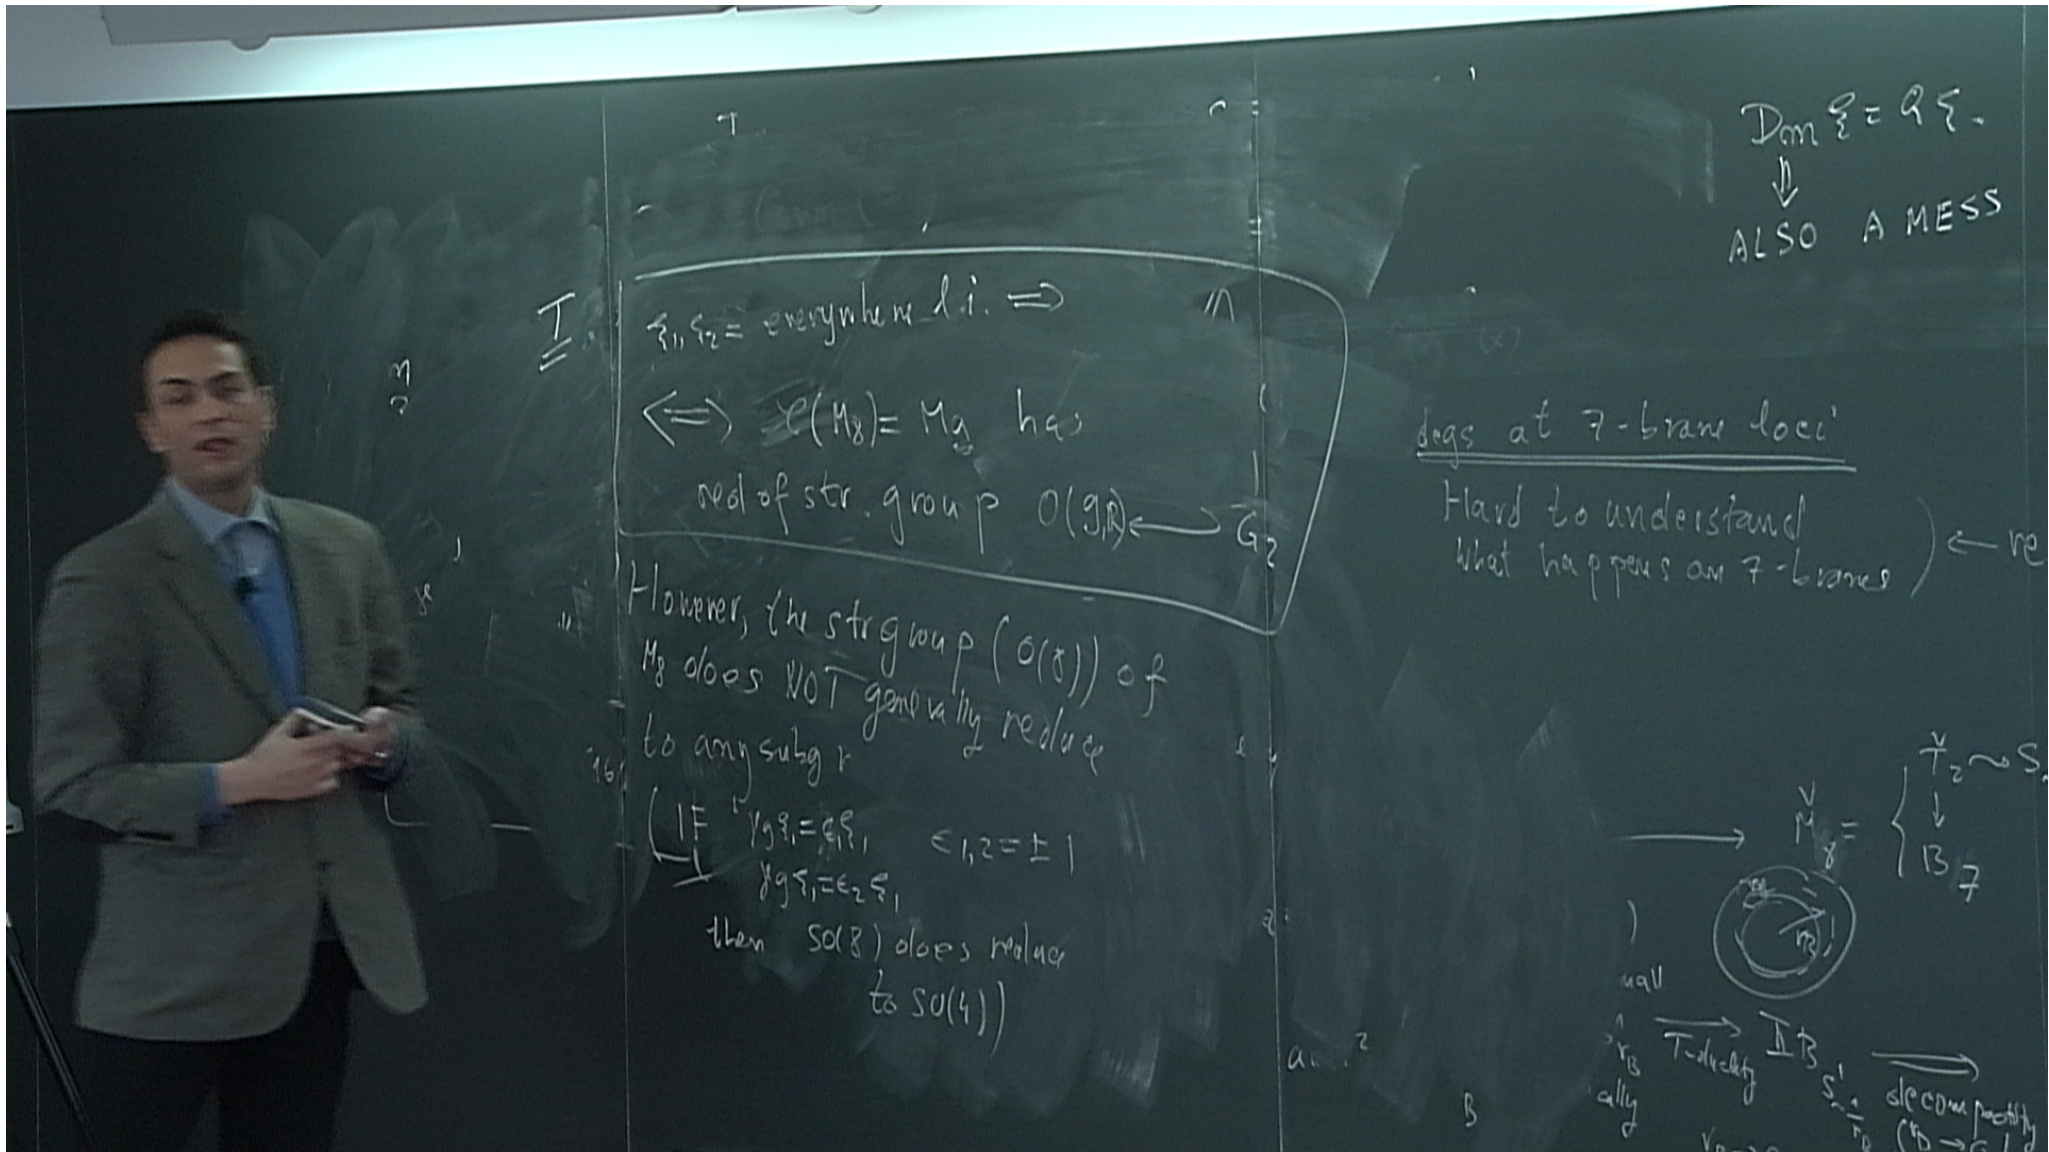 I.
ξ₁, ξ₂ = everywhere l.i. ⇒
⇔ C(M₈) = M₉ has
red of str. group O(9,R) ⟷ G₂
However, the str group (O(8)) of
M₈ does NOT generally reduce
to any subgr
(IF γ₉ξ₁=ε₁ξ₁ ε₁,₂ = ± 1
γ₉ξ₁=ε₂ξ₁
then SO(8) does reduce
to SU(4))
Dm ξ = Q ξ.
⇓
ALSO A MESS
degs at 7-brane loci
Hard to understand
what happens on 7-branes) ← re
M̌₈ = { Ť₂ ~ S
↓
B₇
r_B
T-duality
IIB
ally
B